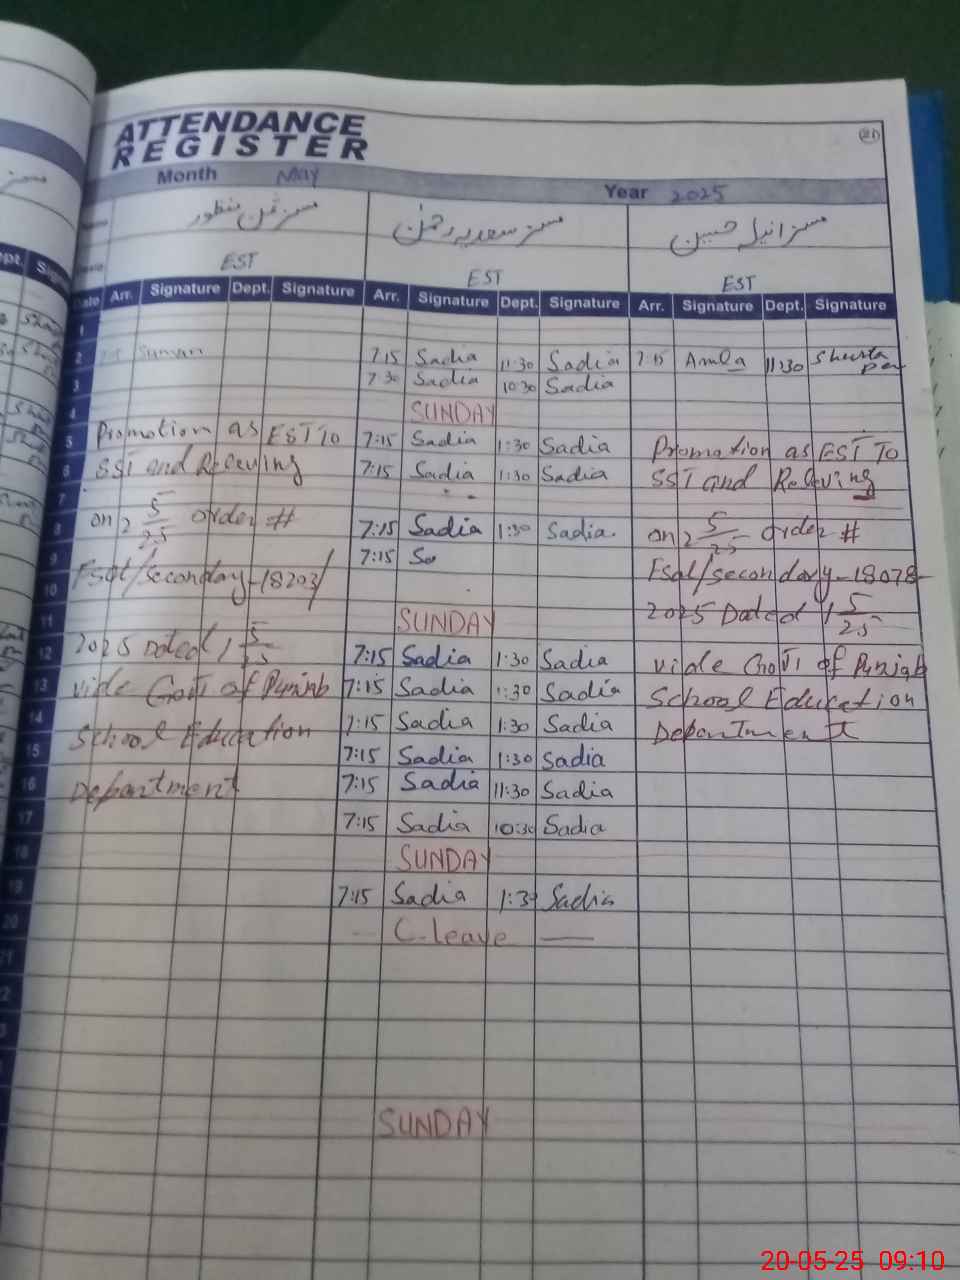 ATTENDANCE
REGISTER
21
Month May Year 2025
مسز سعدیہ رحمٰن مسز انیلہ حسین
EST EST EST
Date Arr. Signature Dept. Signature Arr. Signature Dept. Signature Arr. Signature Dept. Signature
1
2 Suman 7:15 Sadia 11:30 Sadia 7:15 11:30
3 7:30 Sadia 10:30 Sadia
4 SUNDAY
5 Promotion as EST To 7:15 Sadia 1:30 Sadia Promotion as EST To
6 SST and Releving 7:15 Sadia 1:30 Sadia SST and Releving
7
8 on 2 5/25 order # 7:15 Sadia 1:30 Sadia. on 2 5/25 order #
9 7:15 Sa
10 Fsd/secondary-18203/ Fsd/secondary-18078-
11 SUNDAY 2025 Dated 1 5/25
12 2025 Dated 1 5/25 7:15 Sadia 1:30 Sadia vide Govt of Punjab
13 vide Govt of Punjab 7:15 Sadia 1:30 Sadia School Education
14 School Education 7:15 Sadia 1:30 Sadia Department
15 7:15 Sadia 1:30 Sadia
16 Department 7:15 Sadia 11:30 Sadia
17 7:15 Sadia 10:30 Sadia
18 SUNDAY
19 7:15 Sadia 1:30 Sadia
20 — C-leave —
21
SUNDAY
20-05-25 09:10